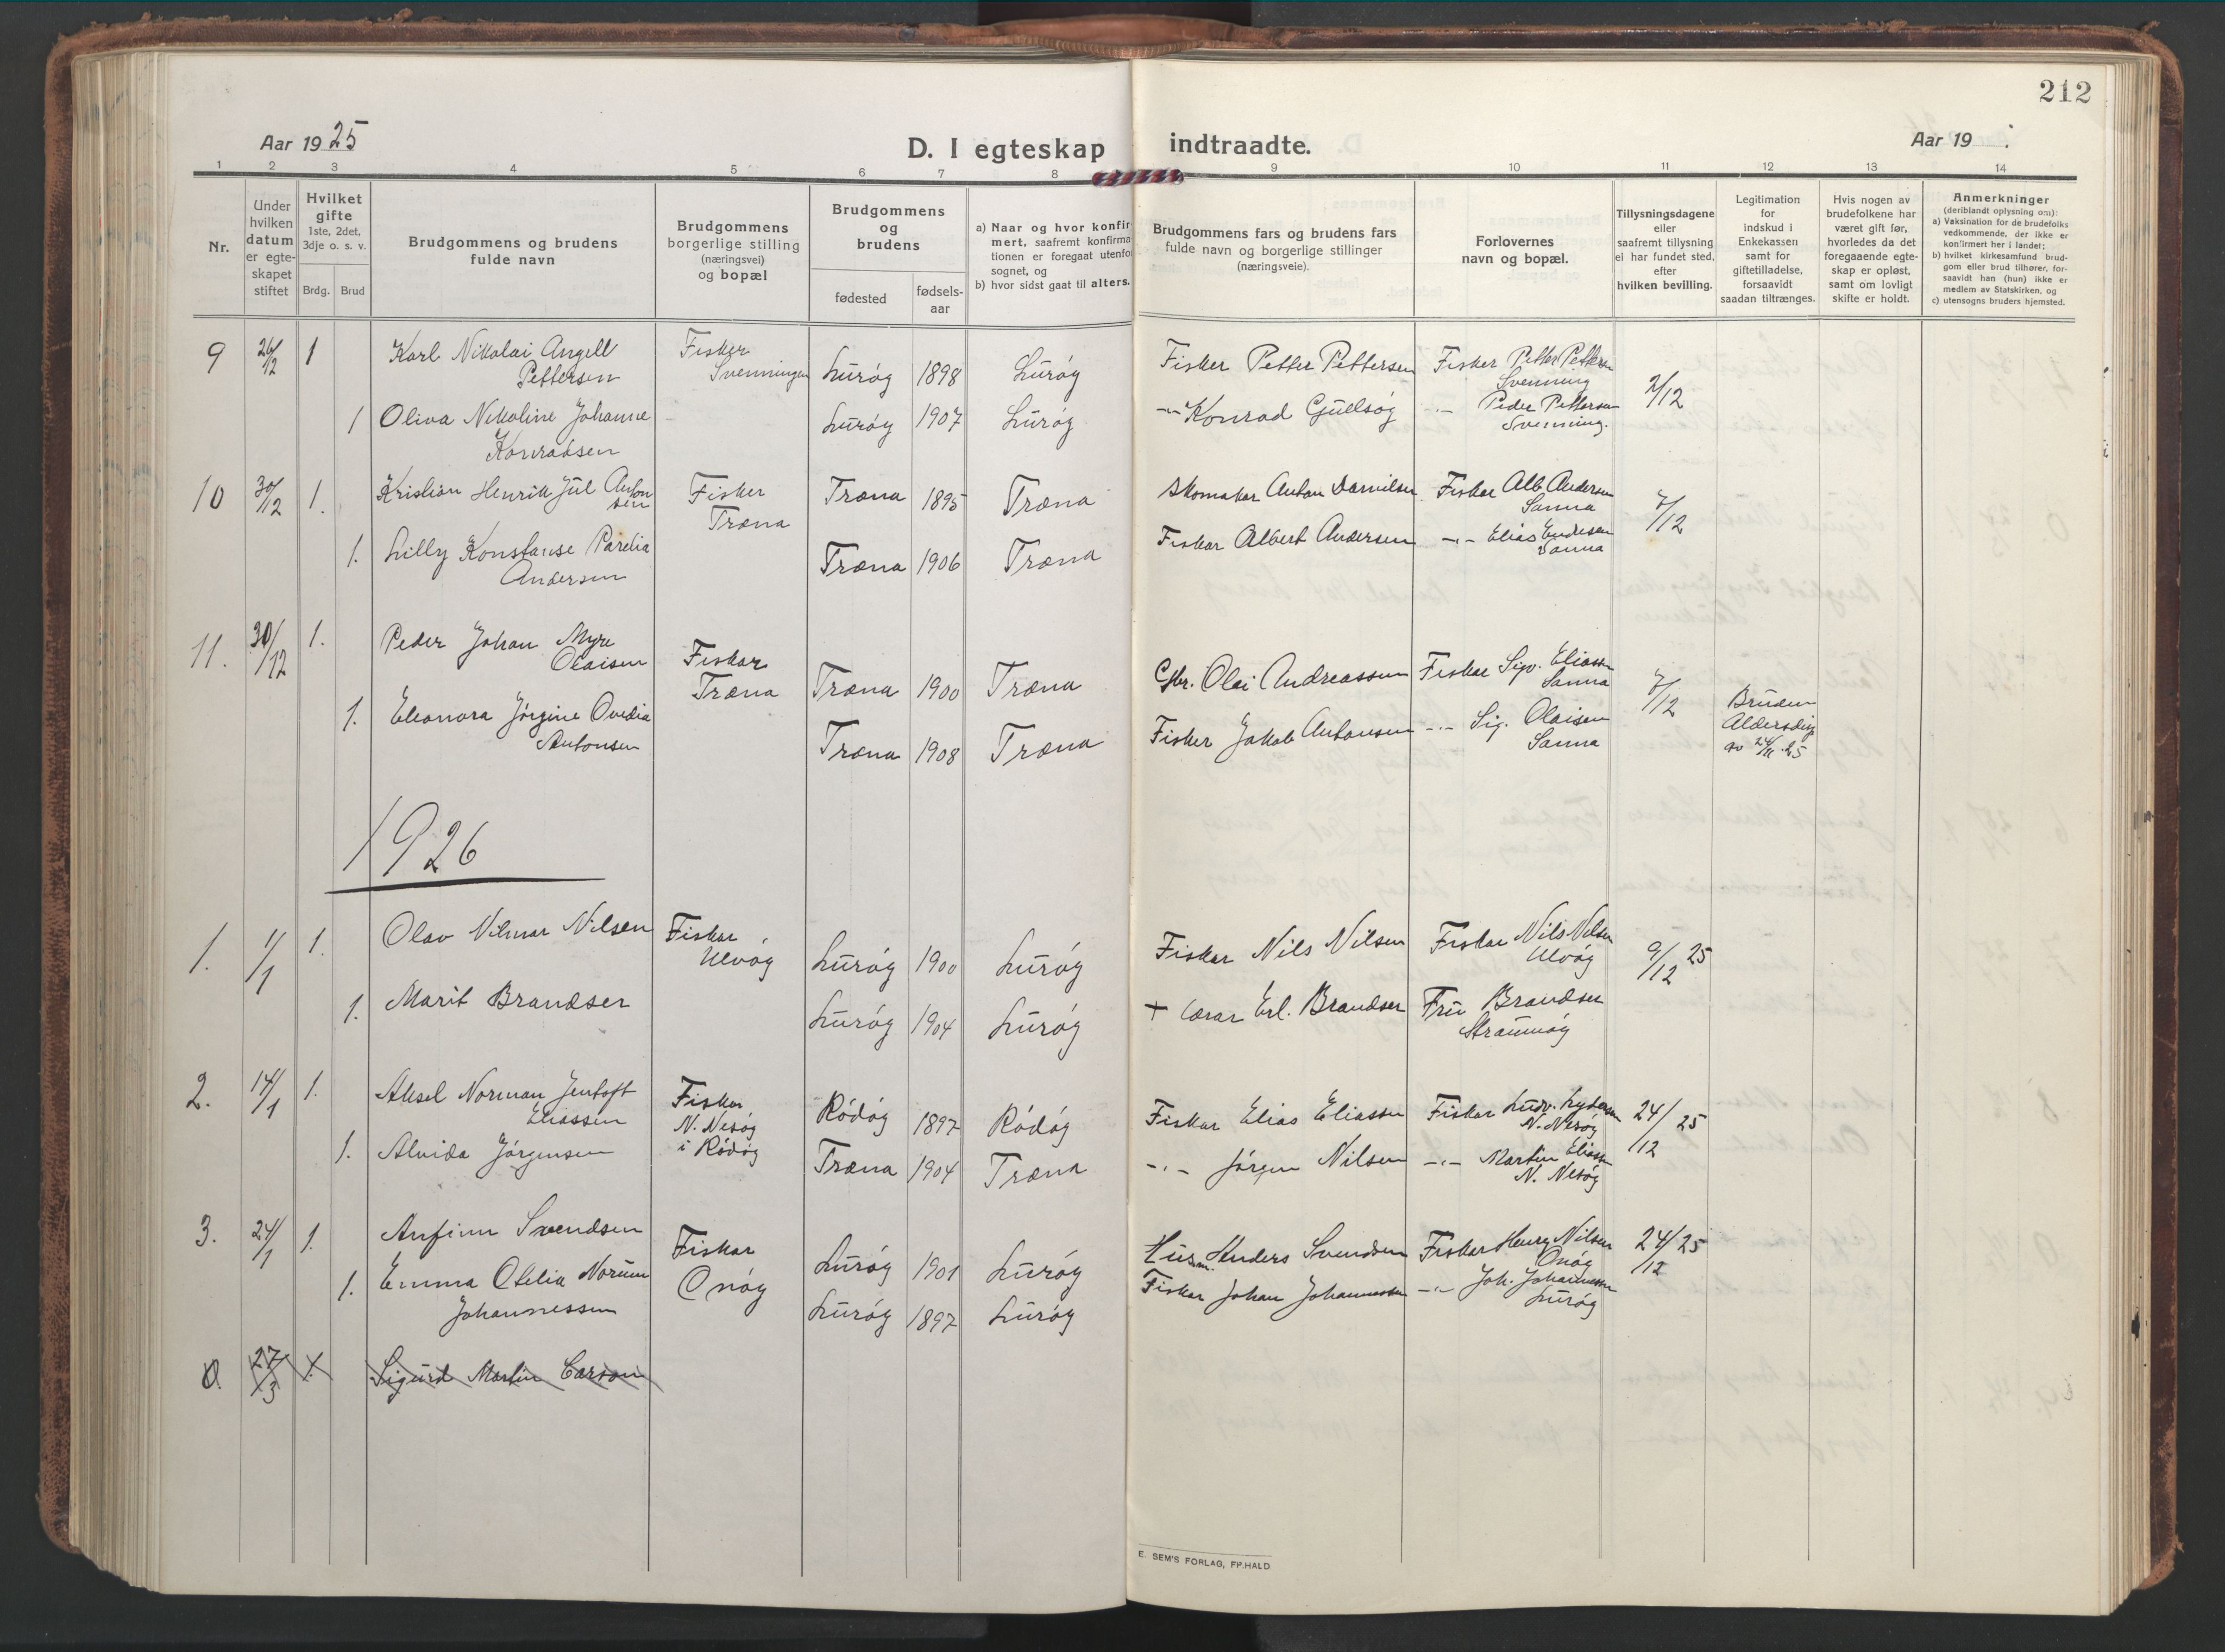 212
Aar 1925
D. I egteskap indtraadte.
Aar 19 .
1 2 3 4 5 6 7 8 9 10 11 12 13 14
Nr.
Under
hvilken
datum
er egte-
skapet
stiftet
Hvilket
gifte
1ste, 2det,
3dje o. s. v.
Brdg. Brud
Brudgommens og brudens
fulde navn
Brudgommens
borgerlige stilling
(næringsvei)
og bopæl
Brudgommens
og
brudens
fødested
fødsels-
aar
a) Naar og hvor konfir
mert, saafremt konfirma
tionen er foregaat utenfo
sognet, og
b) hvor sidst gaat til alters.
Brudgommens fars og brudens fars
fulde navn og borgerlige stillinger
(næringsveie).
Forlovernes
navn og bopæl.
Tillysningsdagene
eller
saafremt tillysning
ei har fundet sted,
efter
hvilken bevilling.
Legitimation
for
indskud i
Enkekassen
samt for
giftetilladelse,
forsaavidt
saadan tiltrænges.
Hvis nogen av
brudefolkene har
været gift før,
hvorledes da det
foregaaende egte-
skap er opløst,
samt om lovligt
skifte er holdt.
Anmerkninger
(deriblandt oplysning om):
a) Vaksination for de brudefolks
vedkommende, der ikke er
konfirmert her i landet;
b) hvilket kirkesamfund brud-
gom eller brud tilhører, for-
saavidt han (hun) ikke er
medlem av Statskirken, og
c) utensogns bruders hjemsted.
9 26/12 1 Karl Nikolai Angell
Pettersen
Fisker
Svenningen
Lurøy 1898 Lurøy
Fisker Petter Pettersen
Fisker Petter Pettersen
Svenning
2/12
1 Oliva Nikoline Johanne
Konradsen
Lurøy 1907 Lurøy
-"- Konrad Gullsøy
-"- Peder Pettersen
Svenning.
10 30/12 1. Kristian Henrik Jul Anton
sen
Fisker
Træna
Træna 1895 Træna
Skomaker Anton Danielsen
Fisker Alb. Andersen
Sanna
7/12
1. Lilly Konstanse Parelia
Andersen
Træna 1906 Træna
Fisker Albert Andersen
-"- Elias Endresen
Sanna
11. 30/12 1. Peder Johan Myre
Olaisen
Fisker
Træna
Træna 1900 Træna
Gbr. Olai Andreassen
Fisker Sigv. Eliassen
Sanna
7/12
Bruden
Aldersdisp
av 24/11.25
1. Eleonora Jørgine Ovedia
Antonsen
Træna 1908 Træna
Fisker Jakob Antonsen
-"- Sig. Olaisen
Sanna
1926
1. 1/1 1. Olav Vilmar Nilsen
Fisker
Ulvøy
Lurøy 1900 Lurøy
Fisker Nils Nilsen
Fisker Nils Nilsen
Ulvøy
9/12 25
1. Marit Brandser
Lurøy 1904 Lurøy
+ Lærer Erl. Brandser
Fru Brandser
2. 14/1 1. Aksel Norman Jentoft
Eliassen
Fisker
N. Nesøy
i Rødøy
Rødøy 1897 Rødøy
Fisker Elias Eliassen
Fisker Ludv. Lydersen
N. Nesøy
24/12 25
1. Alvida Jørgensen
Træna 1904 Træna
-"- Jørgen Nilsen
-"- Martin Eliassen
N. Nesøy
3. 24/1 1. Anfinn Svendsen
Fisker
Onøy
Lurøy 1901 Lurøy
Husm. Anders Svendsen
Fisker Henry Nilsen
Onøy
24/12 25
1. Emma Otelia Norum
Johannessen
Lurøy 1897 Lurøy
Fisker Johan Johannessen
-"- Joh. Johannessen
Lurøy
0. 27/3 1. Sigurd Martin Carson
E. SEM'S FORLAG, FR.HALD